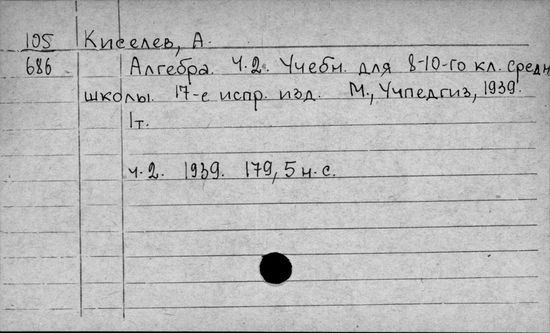 105 Киселев, А.
686 Алгебра. Ч.2. Учебн. для 8-10-го кл. средн
школы. 17-е испр. изд. М., Учпедгиз, 1939.
1т.
ч.2. 1939. 179, 5 н. с.